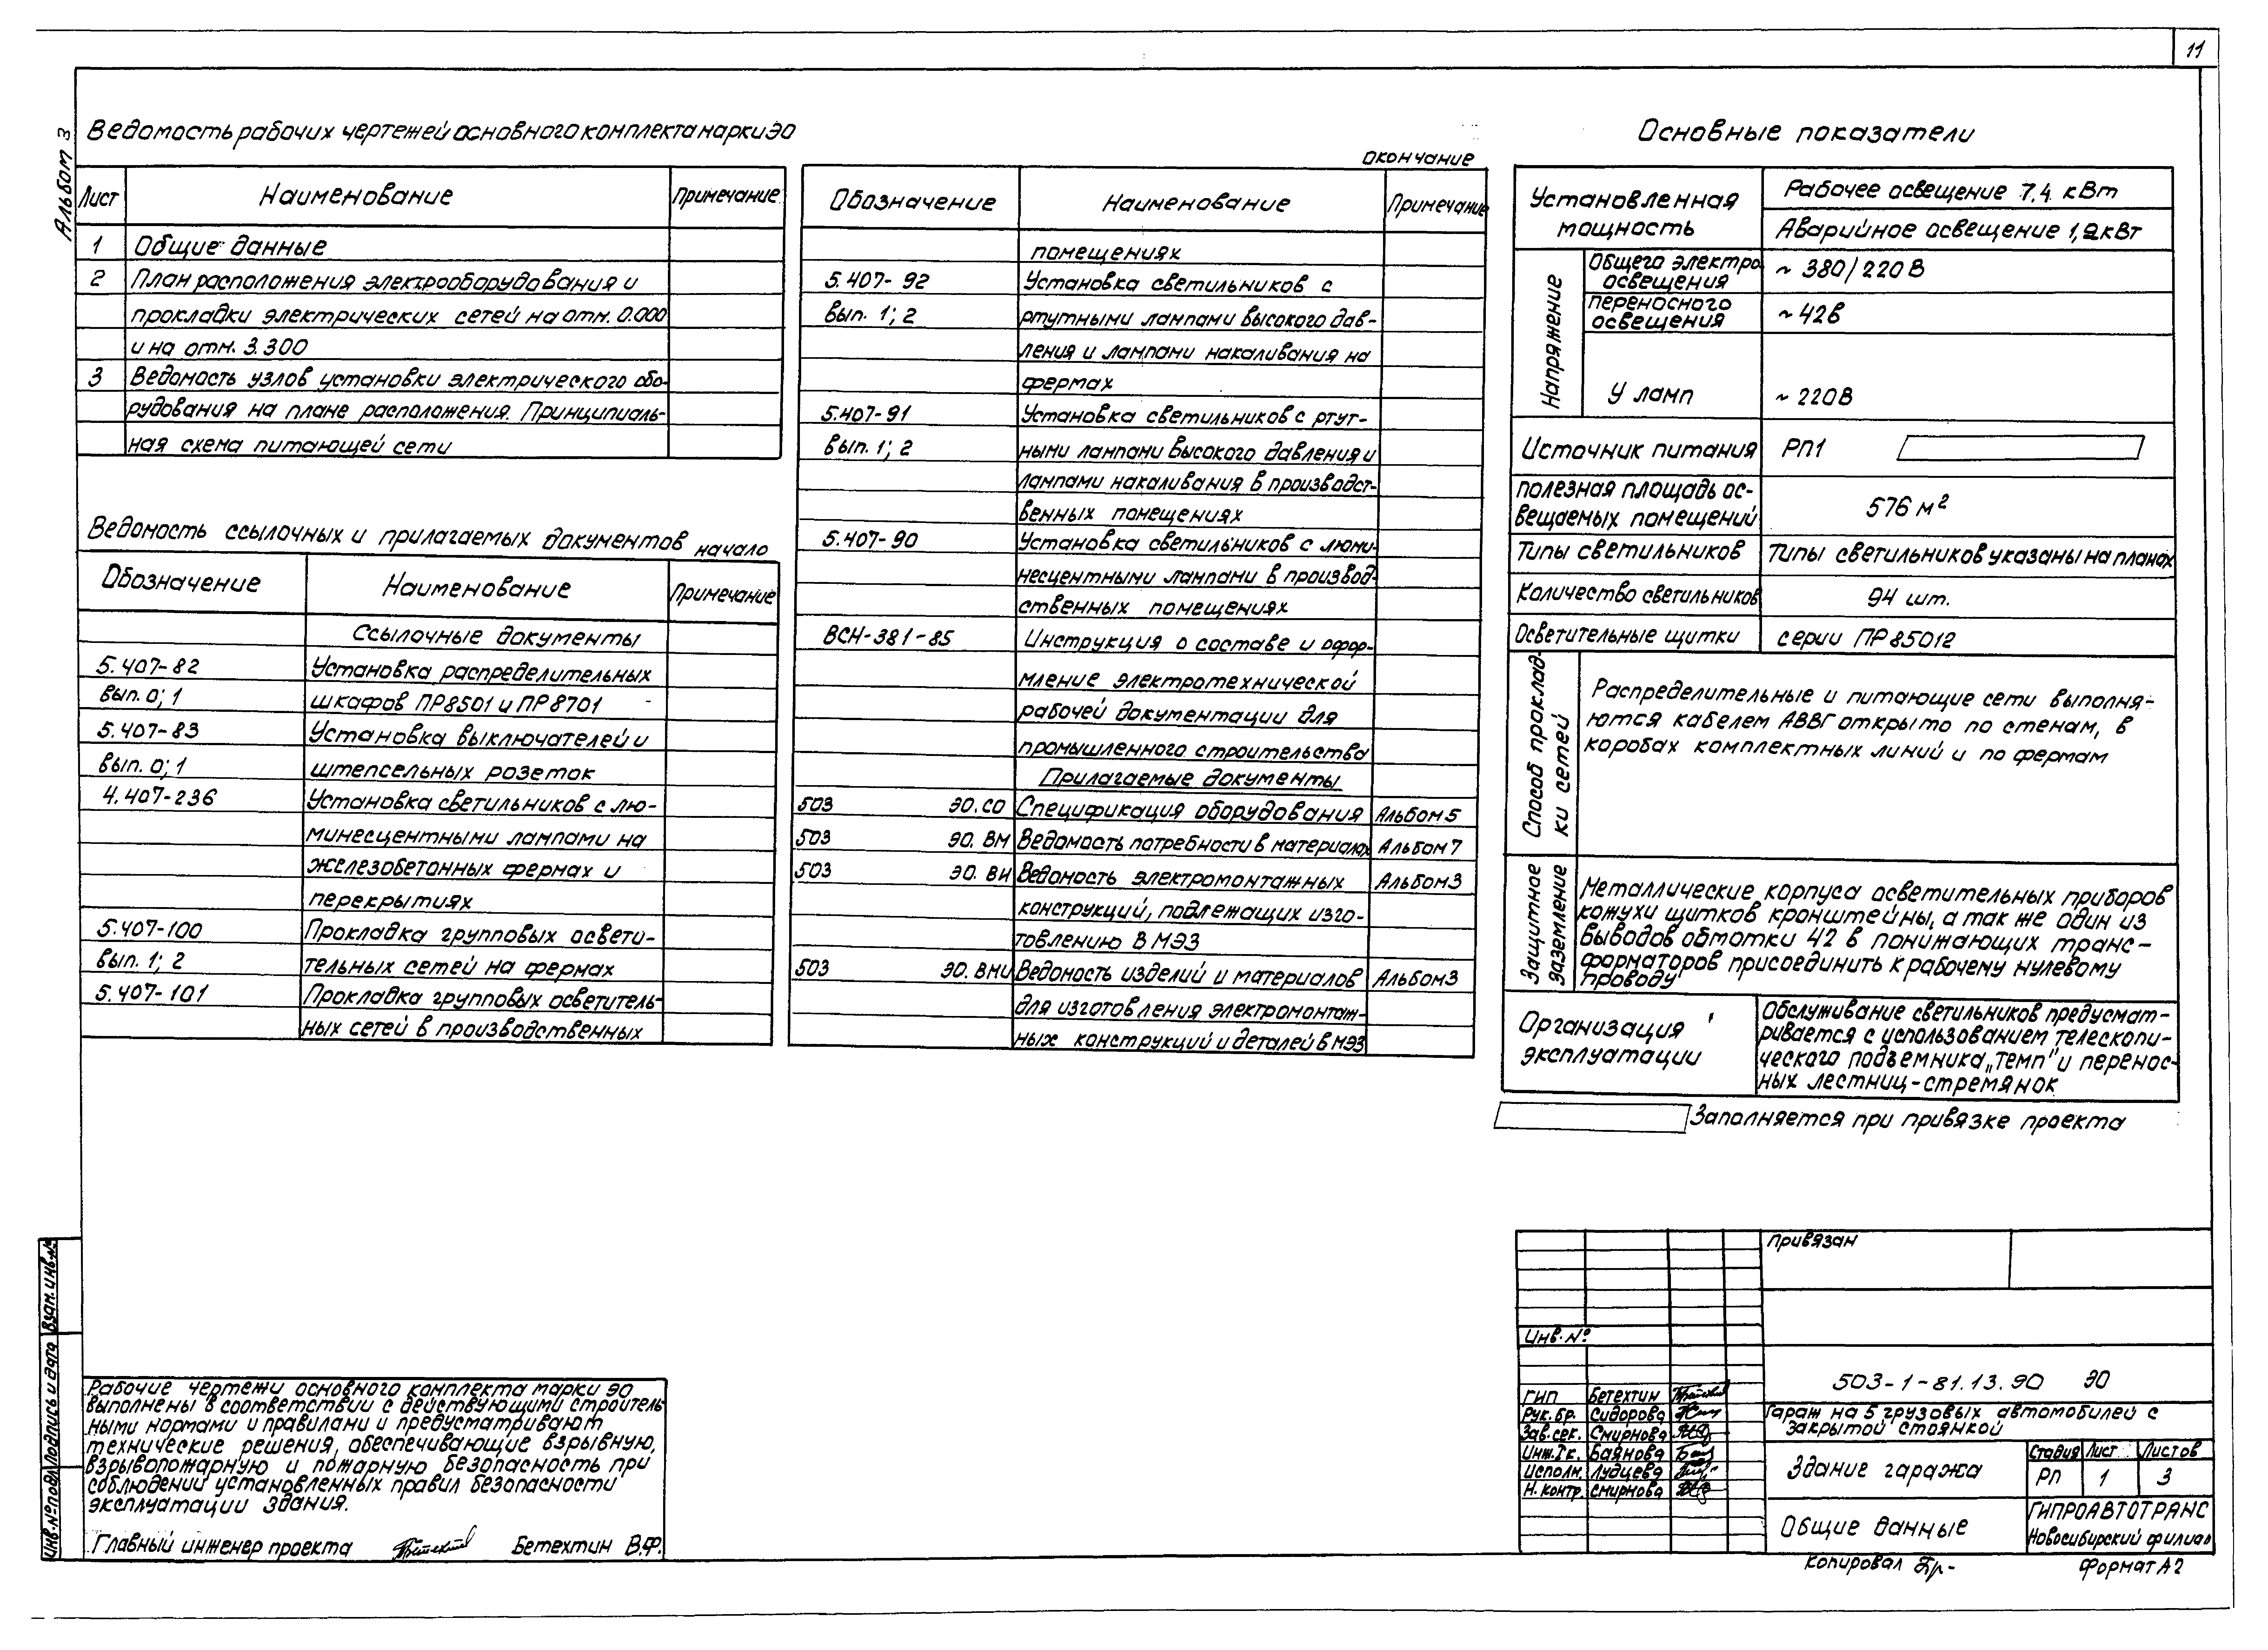 11
Альбом 3
Ведомость рабочих чертежей основного комплекта марки ЭО
Лист Наименование Примечание
1 Общие данные
2 План расположения электрооборудования и
прокладки электрических сетей на отм. 0.000
и на отм. 3.300
3 Ведомость узлов установки электрического обо-
рудования на плане расположения. Принципиаль-
ная схема питающей сети
Ведомость ссылочных и прилагаемых документов начало
Обозначение Наименование Примечание
Ссылочные документы
5.407-82 Установка распределительных
вып. 0; 1 шкафов ПР8501 и ПР8701
5.407-83 Установка выключателей и
вып. 0; 1 штепсельных розеток
4.407-236 Установка светильников с лю-
минесцентными лампами на
железобетонных фермах и
перекрытиях
5.407-100 Прокладка групповых освети-
вып. 1; 2 тельных сетей на фермах
5.407-101 Прокладка групповых осветитель-
ных сетей в производственных
окончание
Обозначение Наименование Примечание
помещениях
5.407-92 Установка светильников с
вып. 1; 2 ртутными лампами высокого дав-
ления и лампами накаливания на
фермах
5.407-91 Установка светильников с ртут-
вып. 1; 2 ными лампами высокого давления и
лампами накаливания в производст-
венных помещениях
5.407-90 Установка светильников с люми-
несцентными лампами в производ-
ственных помещениях
ВСН-381-85 Инструкция о составе и офор-
мление электротехнической
рабочей документации для
промышленного строительства
Прилагаемые документы
503 ЭО.СО Спецификация оборудования Альбом 5
503 ЭО.ВМ Ведомость потребности в материалах Альбом 7
503 ЭО.ВИ Ведомость электромонтажных Альбом 3
конструкций, подлежащих изго-
товлению в МЭЗ
503 ЭО.ВМИ Ведомость изделий и материалов Альбом 3
для изготовления электромонтаж-
ных конструкций и деталей в МЭЗ
Основные показатели
Установленная мощность Рабочее освещение 7,4 кВт
Аварийное освещение 1,2 кВт
Напряжение
Общего электро
освещения ~ 380/220 В
переносного
освещения ~ 42 В
У ламп ~ 220 В
Источник питания РП1
полезная площадь ос-
вещаемых помещений 576 м²
Типы светильников Типы светильников указаны на планах
Количество светильников 94 шт.
Осветительные щитки серии ПР 85012
Способ проклад-
ки сетей
Распределительные и питающие сети выполня-
ются кабелем АВВГ открыто по стенам, в
коробах комплектных линий и по фермам
Защитное
заземление
Металлические корпуса осветительных приборов
кожухи щитков кронштейны, а так же один из
выводов обмотки 42 в понижающих транс-
форматоров присоединить к рабочему нулевому
проводу
Организация
эксплуатации
Обслуживание светильников предусмат-
ривается с использованием телескопи-
ческого подъемника „Темп" и перенос-
ных лестниц-стремянок
Заполняется при привязке проекта
Рабочие чертежи основного комплекта марки ЭО
выполнены в соответствии с действующими строитель
ными нормами и правилами и предусматривают
технические решения, обеспечивающие взрывную,
взрывопожарную и пожарную безопасность при
соблюдении установленных правил безопасности
эксплуатации здания.
Главный инженер проекта Бетехтин В.Ф.
Взам. инв. №
Подпись и дата
Инв. № подл
Привязан
Инв. №
503-1-81.13.90 ЭО
Гараж на 5 грузовых автомобилей с
закрытой стоянкой
ГИП Бетехтин
Рук. бр. Сидорова
Зав. сек. Смирнова
Инж. Iк. Баянова
Исполн. Лудцева
Н. контр. Смирнова
Здание гаража
Стадия Лист Листов
РП 1 3
Общие данные
ГИПРОАВТОТРАНС
Новосибирский филиал
Копировал
Формат А2